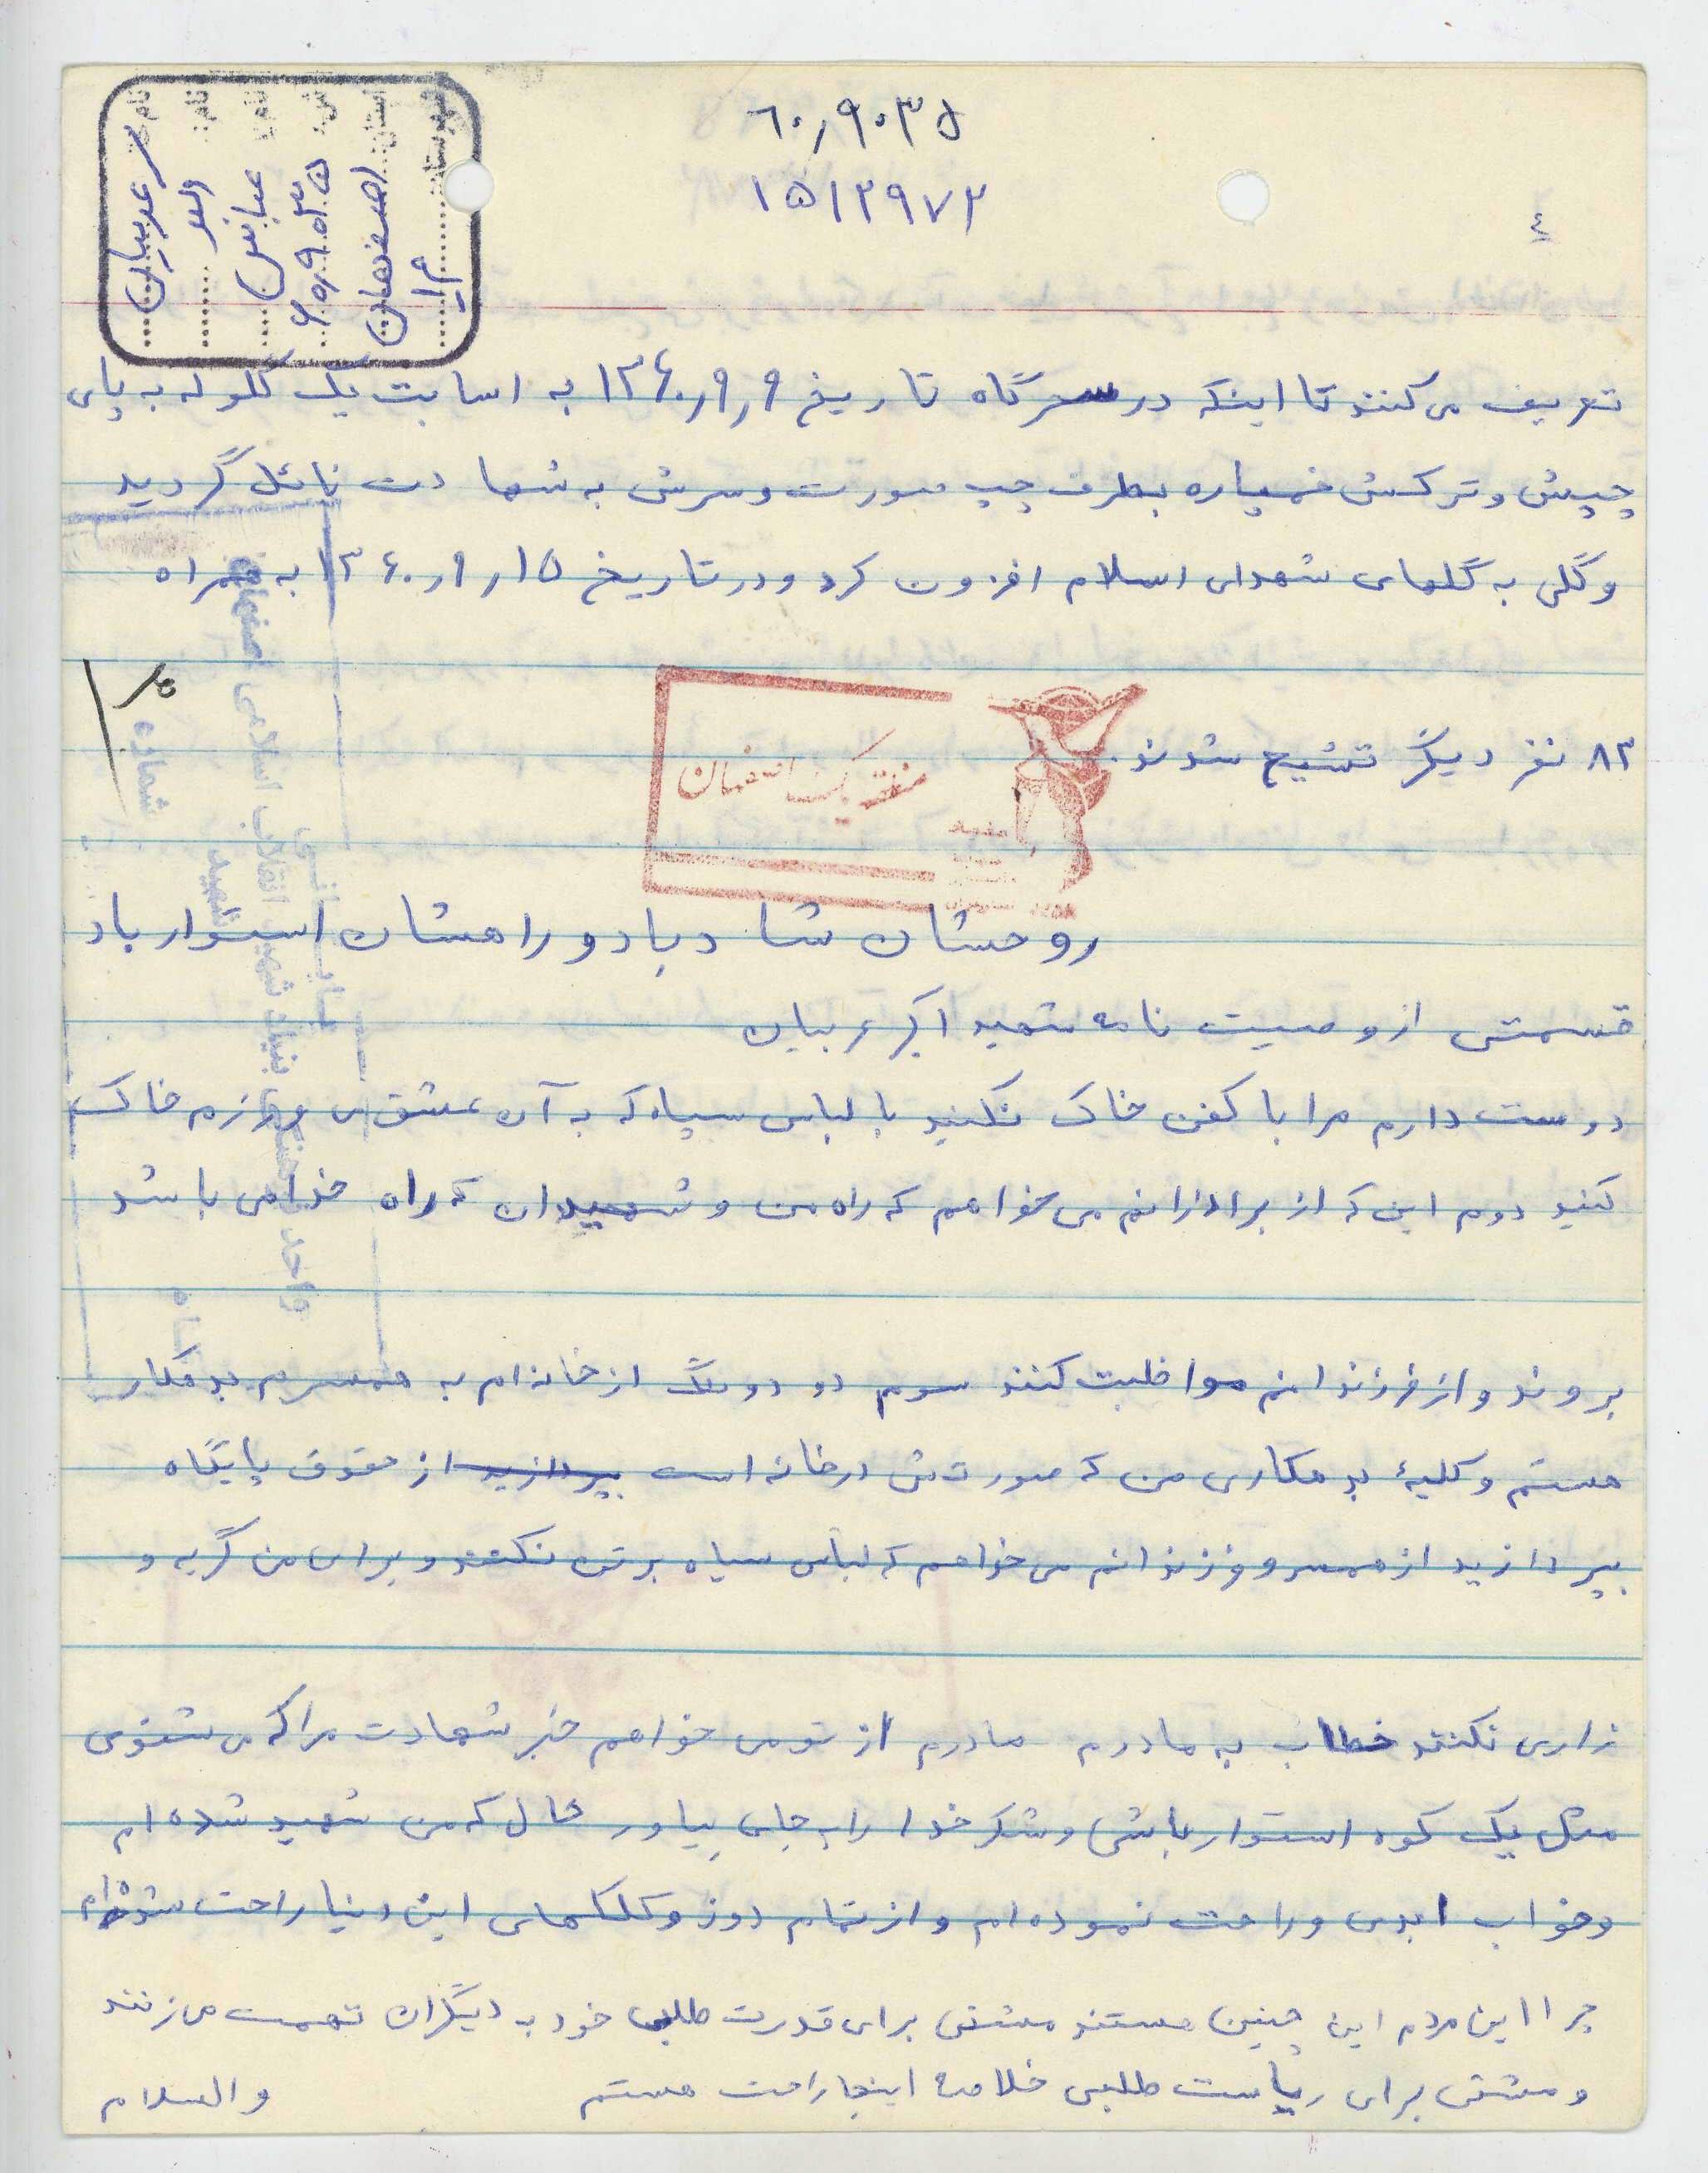 ۶۰,۹۰۳۵
۱۵۱۲۹۷۲
٤
نام: عربیان
نام: اکبر
نام: عباس
ش: ۶۰,۹۰۳۵
استان: اصفهان
شهرستان:
تعریف می کنند تا اینکه در سحرگاه تاریخ ۱۳۶۰,۹,۹ به اسابت یک گلوله به پای
چپش و ترکش خمپاره بطرف چپ صورت و سرش به شهادت نائل گردید
و گلی به گلهای شهدای اسلام افزون کرد و در تاریخ ۱۳۶۰,۹,۱۵ به همراه
۸۲ نفر دیگر تشیح شوند.
منطقه یک اصفهان
روحشان شاد باد و راهشان استوار باد
قسمتی از وصیت نامه شهید اکبر عربیان
دوست دارم مرا با کفن خاک نکنید با لباس سپاه که به آن عشق می ورزم خاک
کنید دوم این که از برادرانم می خواهم که راه من و شهیدان که راه خدا می باشد
بروند و از فرزندانم مواظبت کنند سوم دو دونگ از خانه ام به همسرم بدهکار
هستم و کلیهٔ بدهکاری من که صورتش در خانه است بپردازید از حقوق پایگاه
بپردازید از همسر و فرزندانم می خواهم که لباس سیاه بر تن نکنند و برای من گریه و
زاری نکنند خطاب به مادرم مادرم از تو می خواهم خبر شهادت مرا که می شنوی
مثل یک کوه استوار باشی و شکر خدا را به جای بیاور حال که من شهید شده ام
و خواب ابدی و راحت نموده ام و از تمام دوز و کلکهای این دنیا راحت شده ام
چرا این مردم این چنین هستند مشتی برای قدرت طلبی خود به دیگران تهمت می زنند
و مشتی برای ریاست طلبی خلاصه اینجا راحت هستم والسلام